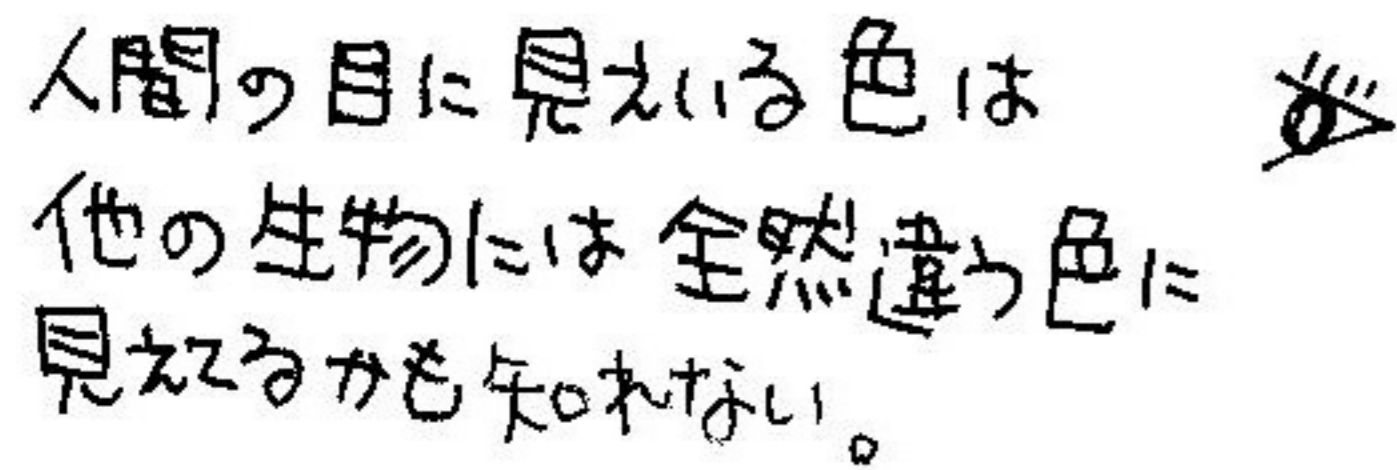 人間の目に見えいる色は
他の生物には全然違う色に
見えてるかも知れない。